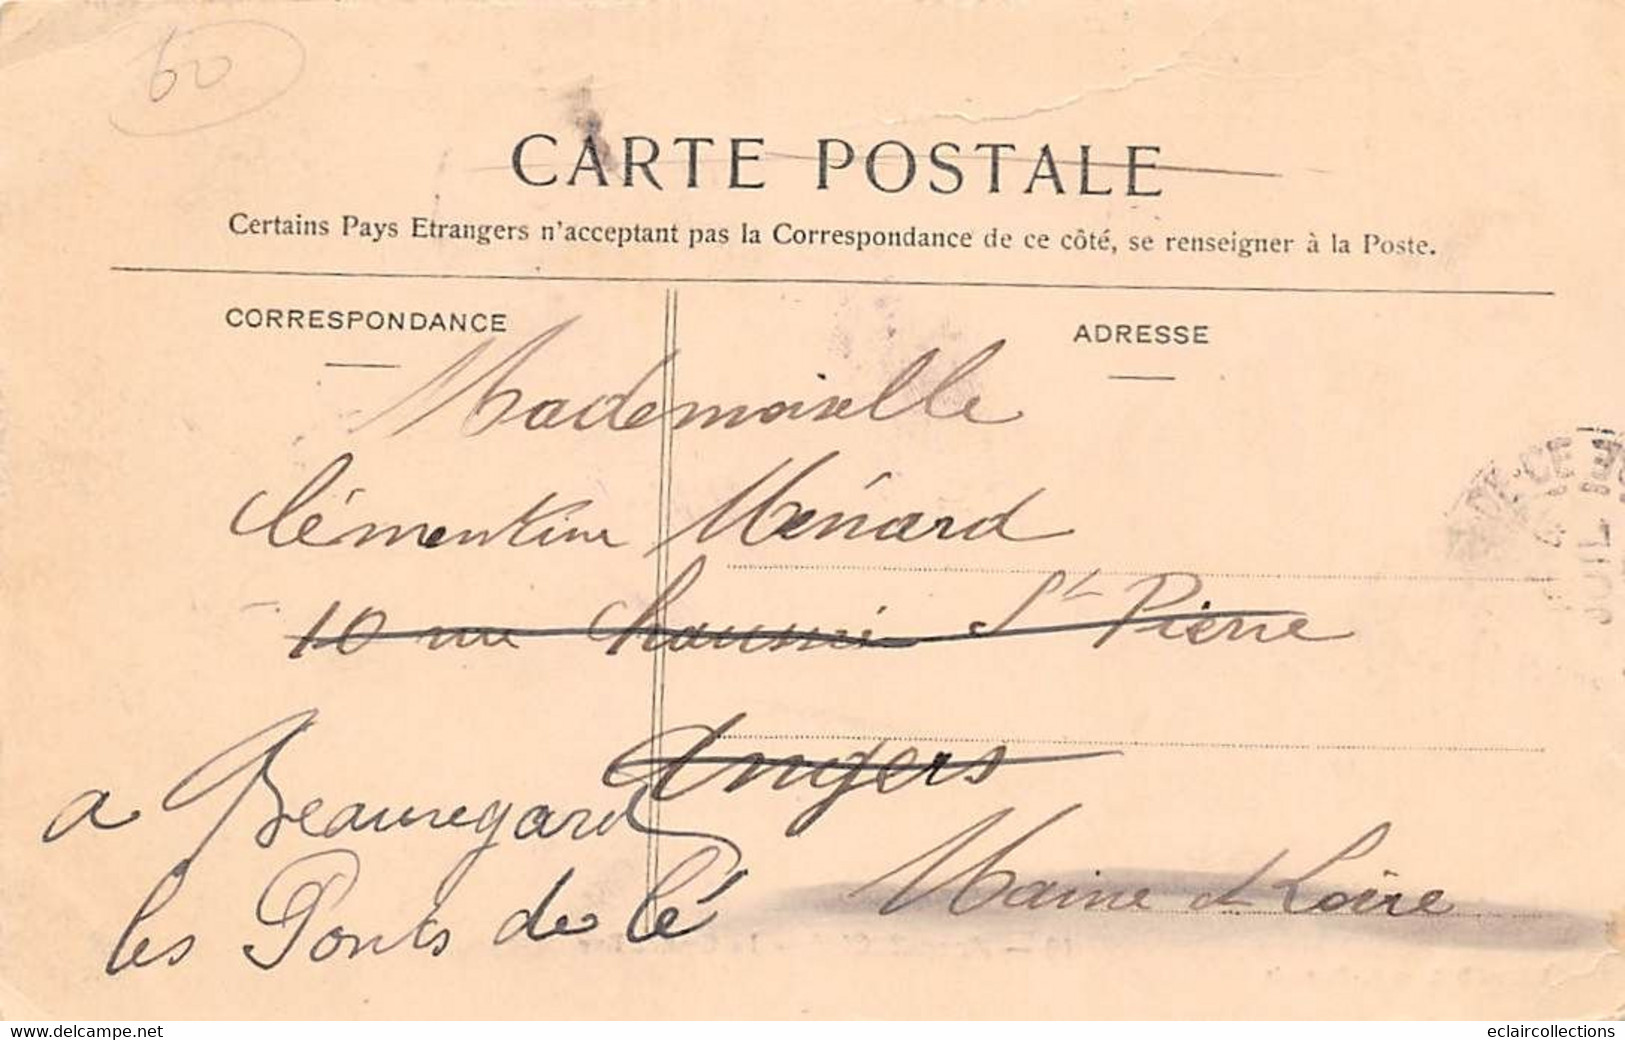 60
CARTE POSTALE
Certains Pays Etrangers n'acceptant pas la Correspondance de ce côté, se renseigner à la Poste.
CORRESPONDANCE
ADRESSE
Mademoiselle
Clémentine Ménard
10 rue Chaussée St Pierre
Angers
a Beauregard
Maine et Loire
les Ponts de Cé
www.delcampe.net
eclaircollections